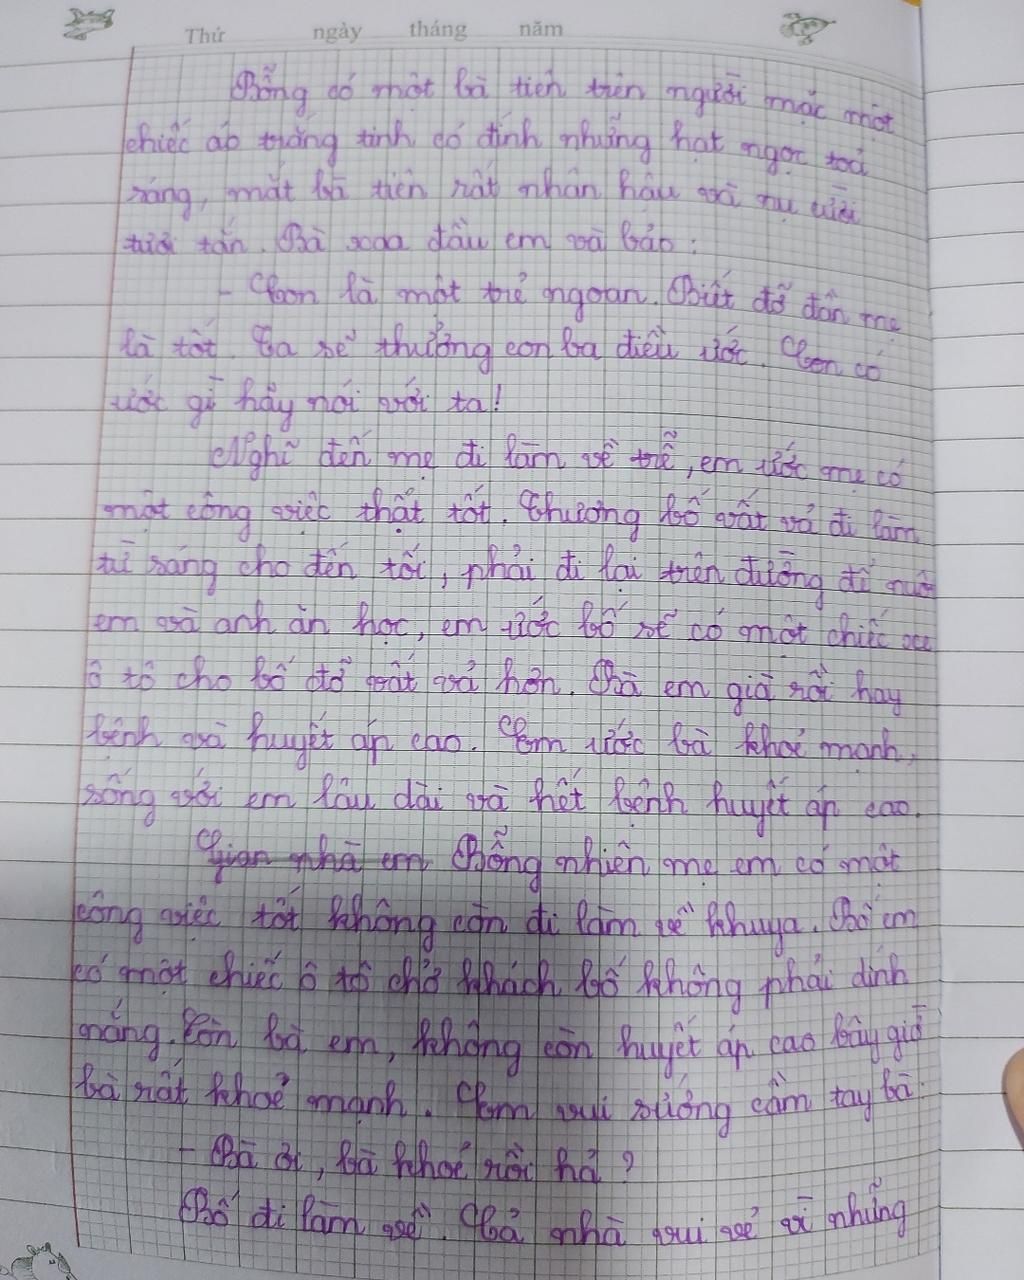 Thứ ngày tháng năm
Bỗng có một bà tiên trên người mặc một
chiếc áo trắng tinh có đính những hạt ngọc toả
sáng, mắt bà tiên rất nhân hâu và nụ cười
tươi tắn. Bà xoa đầu em và bảo:
- Con là một trẻ ngoan. Biết đỡ đần mẹ
là tốt. Ta sẽ thưởng con ba điều ước. Con có
ước gì hãy nói với ta!
Nghĩ đến mẹ đi làm về trễ, em ước mẹ có
một công việc thật tốt. Thương bố vất vả đi làm
từ sáng cho đến tối, phải đi lại trên đường để nuôi
em và anh ăn học, em ước bố sẽ có một chiếc xe
ô tô cho bố đỡ vất vả hơn. Bà em già rồi hay
bệnh và huyết áp cao. Em ước bà khoẻ mạnh,
sống với em lâu dài và hết bệnh huyết áp cao.
Gian nhà em Bỗng nhiên mẹ em có một
công việc tốt không còn đi làm về khuya. Bố em
có một chiếc ô tô chở khách bố không phải dính
nắng. Còn bà em, không còn huyết áp cao bây giờ
bà rất khoẻ mạnh. Em vui sướng cầm tay bà:
- Bà ơi, bà khoẻ rồi hả?
Bố đi làm về. Cả nhà vui vẻ vì những